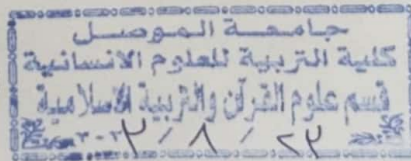 جامعة الموصل
كلية التربية للعلوم الانسانية
قسم علوم القرآن والتربية الاسلامية
٢٣ / ٨ /